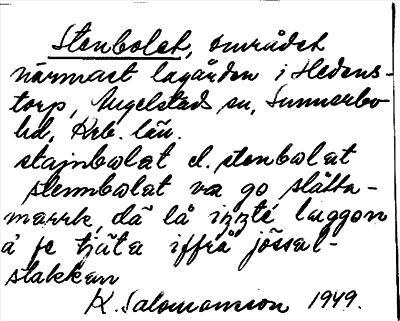 Stenbolet, området
närmast lagården i Hedens-
torp, Angelstads sn, Sunnerbo
hd, Krb. län.
stajnbolat el. stenbolat
stennbolat va go slåtta-
marrk, dä lå inte laggon
å fe tjöta iffrå jössal-
stakkan
K. Salomonson 1949.